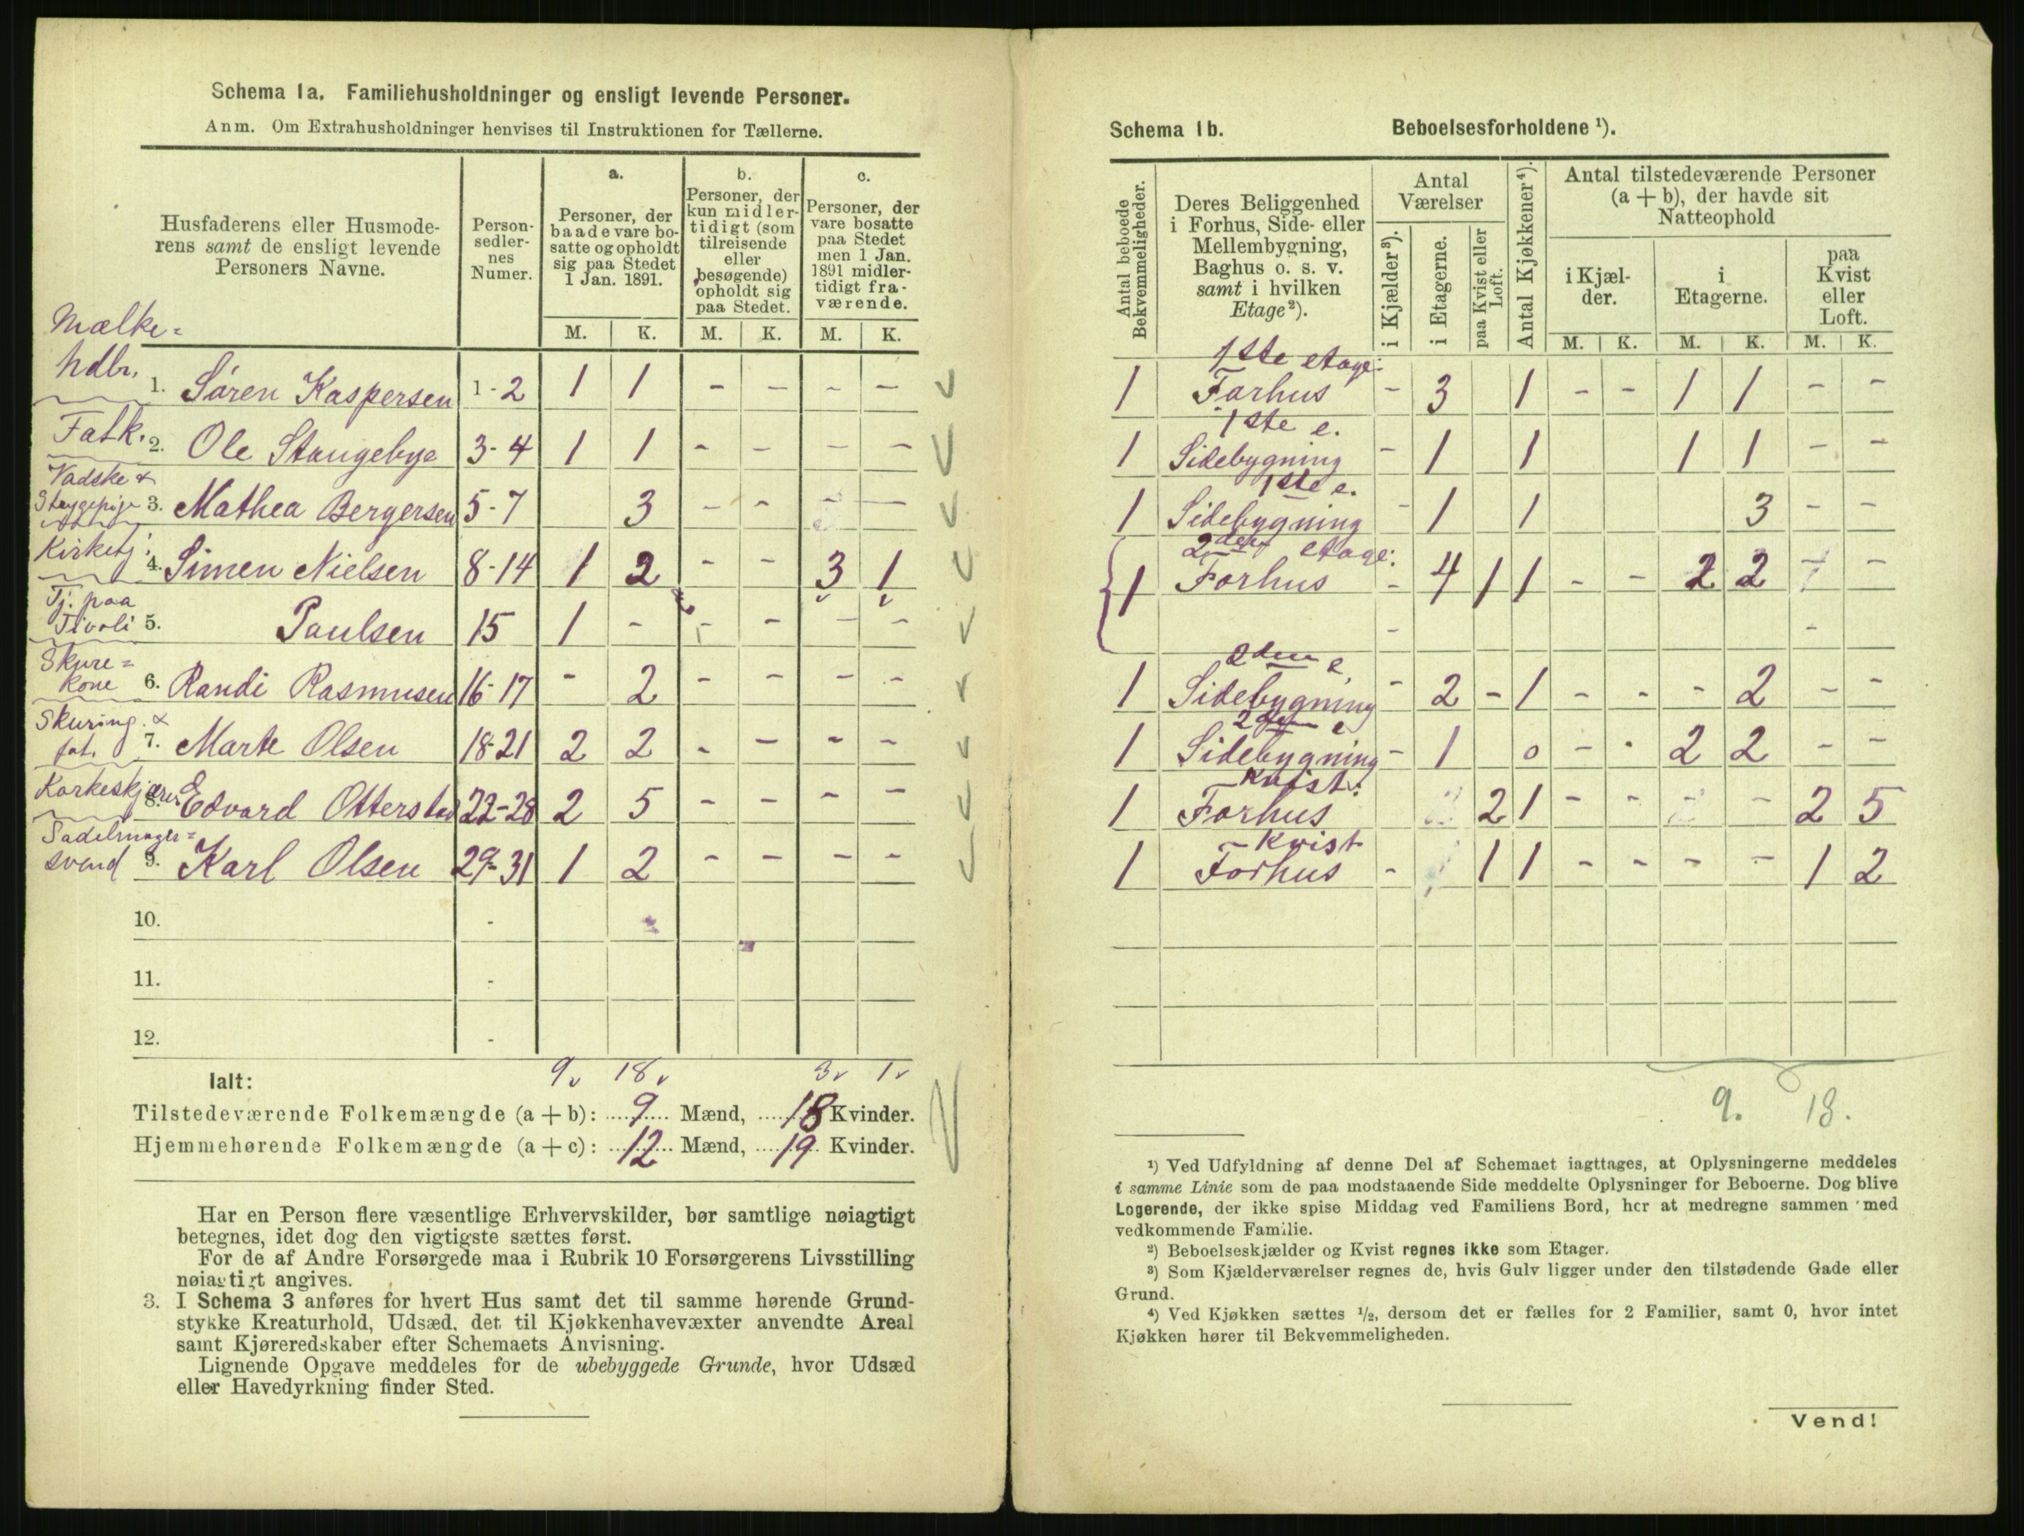 Schema 1a. Familiehusholdninger og ensligt levende Personer.
Anm. Om Extrahusholdninger henvises til Instruktionen for Tællerne.
Husfaderens eller Husmoderens samt de ensligt levende Personers Navne.
Personsedlernes Numer.
a. Personer, der baade vare bosatte og opholdt sig paa Stedet 1 Jan. 1891.
b. Personer, der kun midlertidigt (som tilreisende eller besøgende) opholdt sig paa Stedet.
c. Personer, der vare bosatte paa Stedet men 1 Jan. 1891 midlertidigt fraværende.
M. K. M. K. M. K.
Mælke=
hdbr. 1. Søren Kaspersen 1-2 1 1 - - - -
Fatk. 2. Ole Stangebye 3-4 1 1 - - - -
Vadske &
Strygepige 3. Mathea Bergersen 5-7 3 - - - -
Kirketj. 4. Simen Nielsen 8-14 1 2 - - 3 1
Tj. paa
Tivoli 5. Paulsen 15 1 - - - - -
Skure=
kone 6. Randi Rasmusen 16-17 - 2 - - - -
Skuring. &
fat. 7. Marte Olsen 18-21 2 2 - - - -
Korkeskjærer 8. Edvard Otterstad 22-28 2 5 - - - -
Sadelmager=
svend 9. Karl Olsen 29-31 1 2 - - - -
10. -
11. -
12. -
Ialt: 9 18 3 1
Tilstedeværende Folkemængde (a + b): 9 Mænd, 18 Kvinder.
Hjemmehørende Folkemængde (a + c): 12 Mænd, 19 Kvinder.
Har en Person flere væsentlige Erhvervskilder, bør samtlige nøiagtigt
betegnes, idet dog den vigtigste sættes først.
For de af Andre Forsørgede maa i Rubrik 10 Forsørgerens Livsstilling
nøiagtigt angives.
3. I Schema 3 anføres for hvert Hus samt det til samme hørende Grund-
stykke Kreaturhold, Udsæd, det til Kjøkkenhavevæxter anvendte Areal
samt Kjøreredskaber efter Schemaets Anvisning.
Lignende Opgave meddeles for de ubebyggede Grunde, hvor Udsæd
eller Havedyrkning finder Sted.
Schema 1b. Beboelsesforholdene ¹).
Antal beboede Bekvemmeligheder.
Deres Beliggenhed i Forhus, Side- eller Mellembygning, Baghus o. s. v. samt i hvilken Etage²).
Antal Værelser
i Kjælder³). i Etagerne. paa Kvist eller Loft.
Antal Kjøkkener⁴).
Antal tilstedeværende Personer (a + b), der havde sit Natteophold
i Kjælder. i Etagerne. paa Kvist eller Loft.
M. K. M. K. M. K.
1ste etage:
1 Forhus - 3 1 - - 1 1 - -
1ste e.
1 Sidebygning - 1 1 1 1 - -
1ste e.
1 Sidebygning - 1 1 3 - -
2den etage:
1 Forhus - 4 1 1 - - 2 2 -
- -
2den e
1 Sidebygning - 2 - 1 - - - 2 - -
2den e
1 Sidebygning - 1 0 - - 2 2 - -
Kvist:
1 Forhus 2 1 - - - 2 5
Kvist
1 Forhus - 1 1 - - - - 1 2
9. 18.
¹) Ved Udfyldning af denne Del af Schemaet iagttages, at Oplysningerne meddeles
i samme Linie som de paa modstaaende Side meddelte Oplysninger for Beboerne. Dog blive
Logerende, der ikke spise Middag ved Familiens Bord, her at medregne sammen med
vedkommende Familie.
²) Beboelseskjælder og Kvist regnes ikke som Etager.
³) Som Kjælderværelser regnes de, hvis Gulv ligger under den tilstødende Gade eller
Grund.
⁴) Ved Kjøkken sættes ½, dersom det er fælles for 2 Familier, samt 0, hvor intet
Kjøkken hører til Bekvemmeligheden.
Vend!